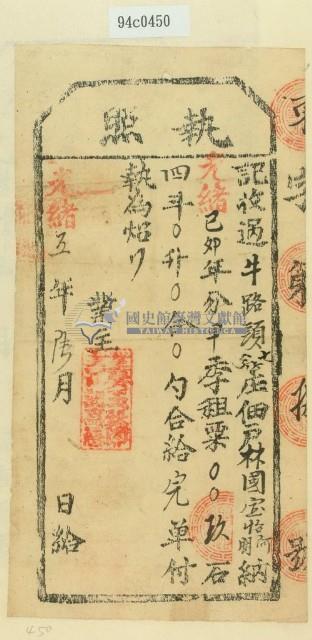 94c0450
執照
記收過牛路頭大庄佃戶林國宝怡 阿 明納
光緒己卯年分早季租粟00玖石
四斗0升0合0勺合給完單付
執為炤
業主
光緒五年 月 日給
國史館臺灣文獻館
TAIWAN HISTORICA
號
450